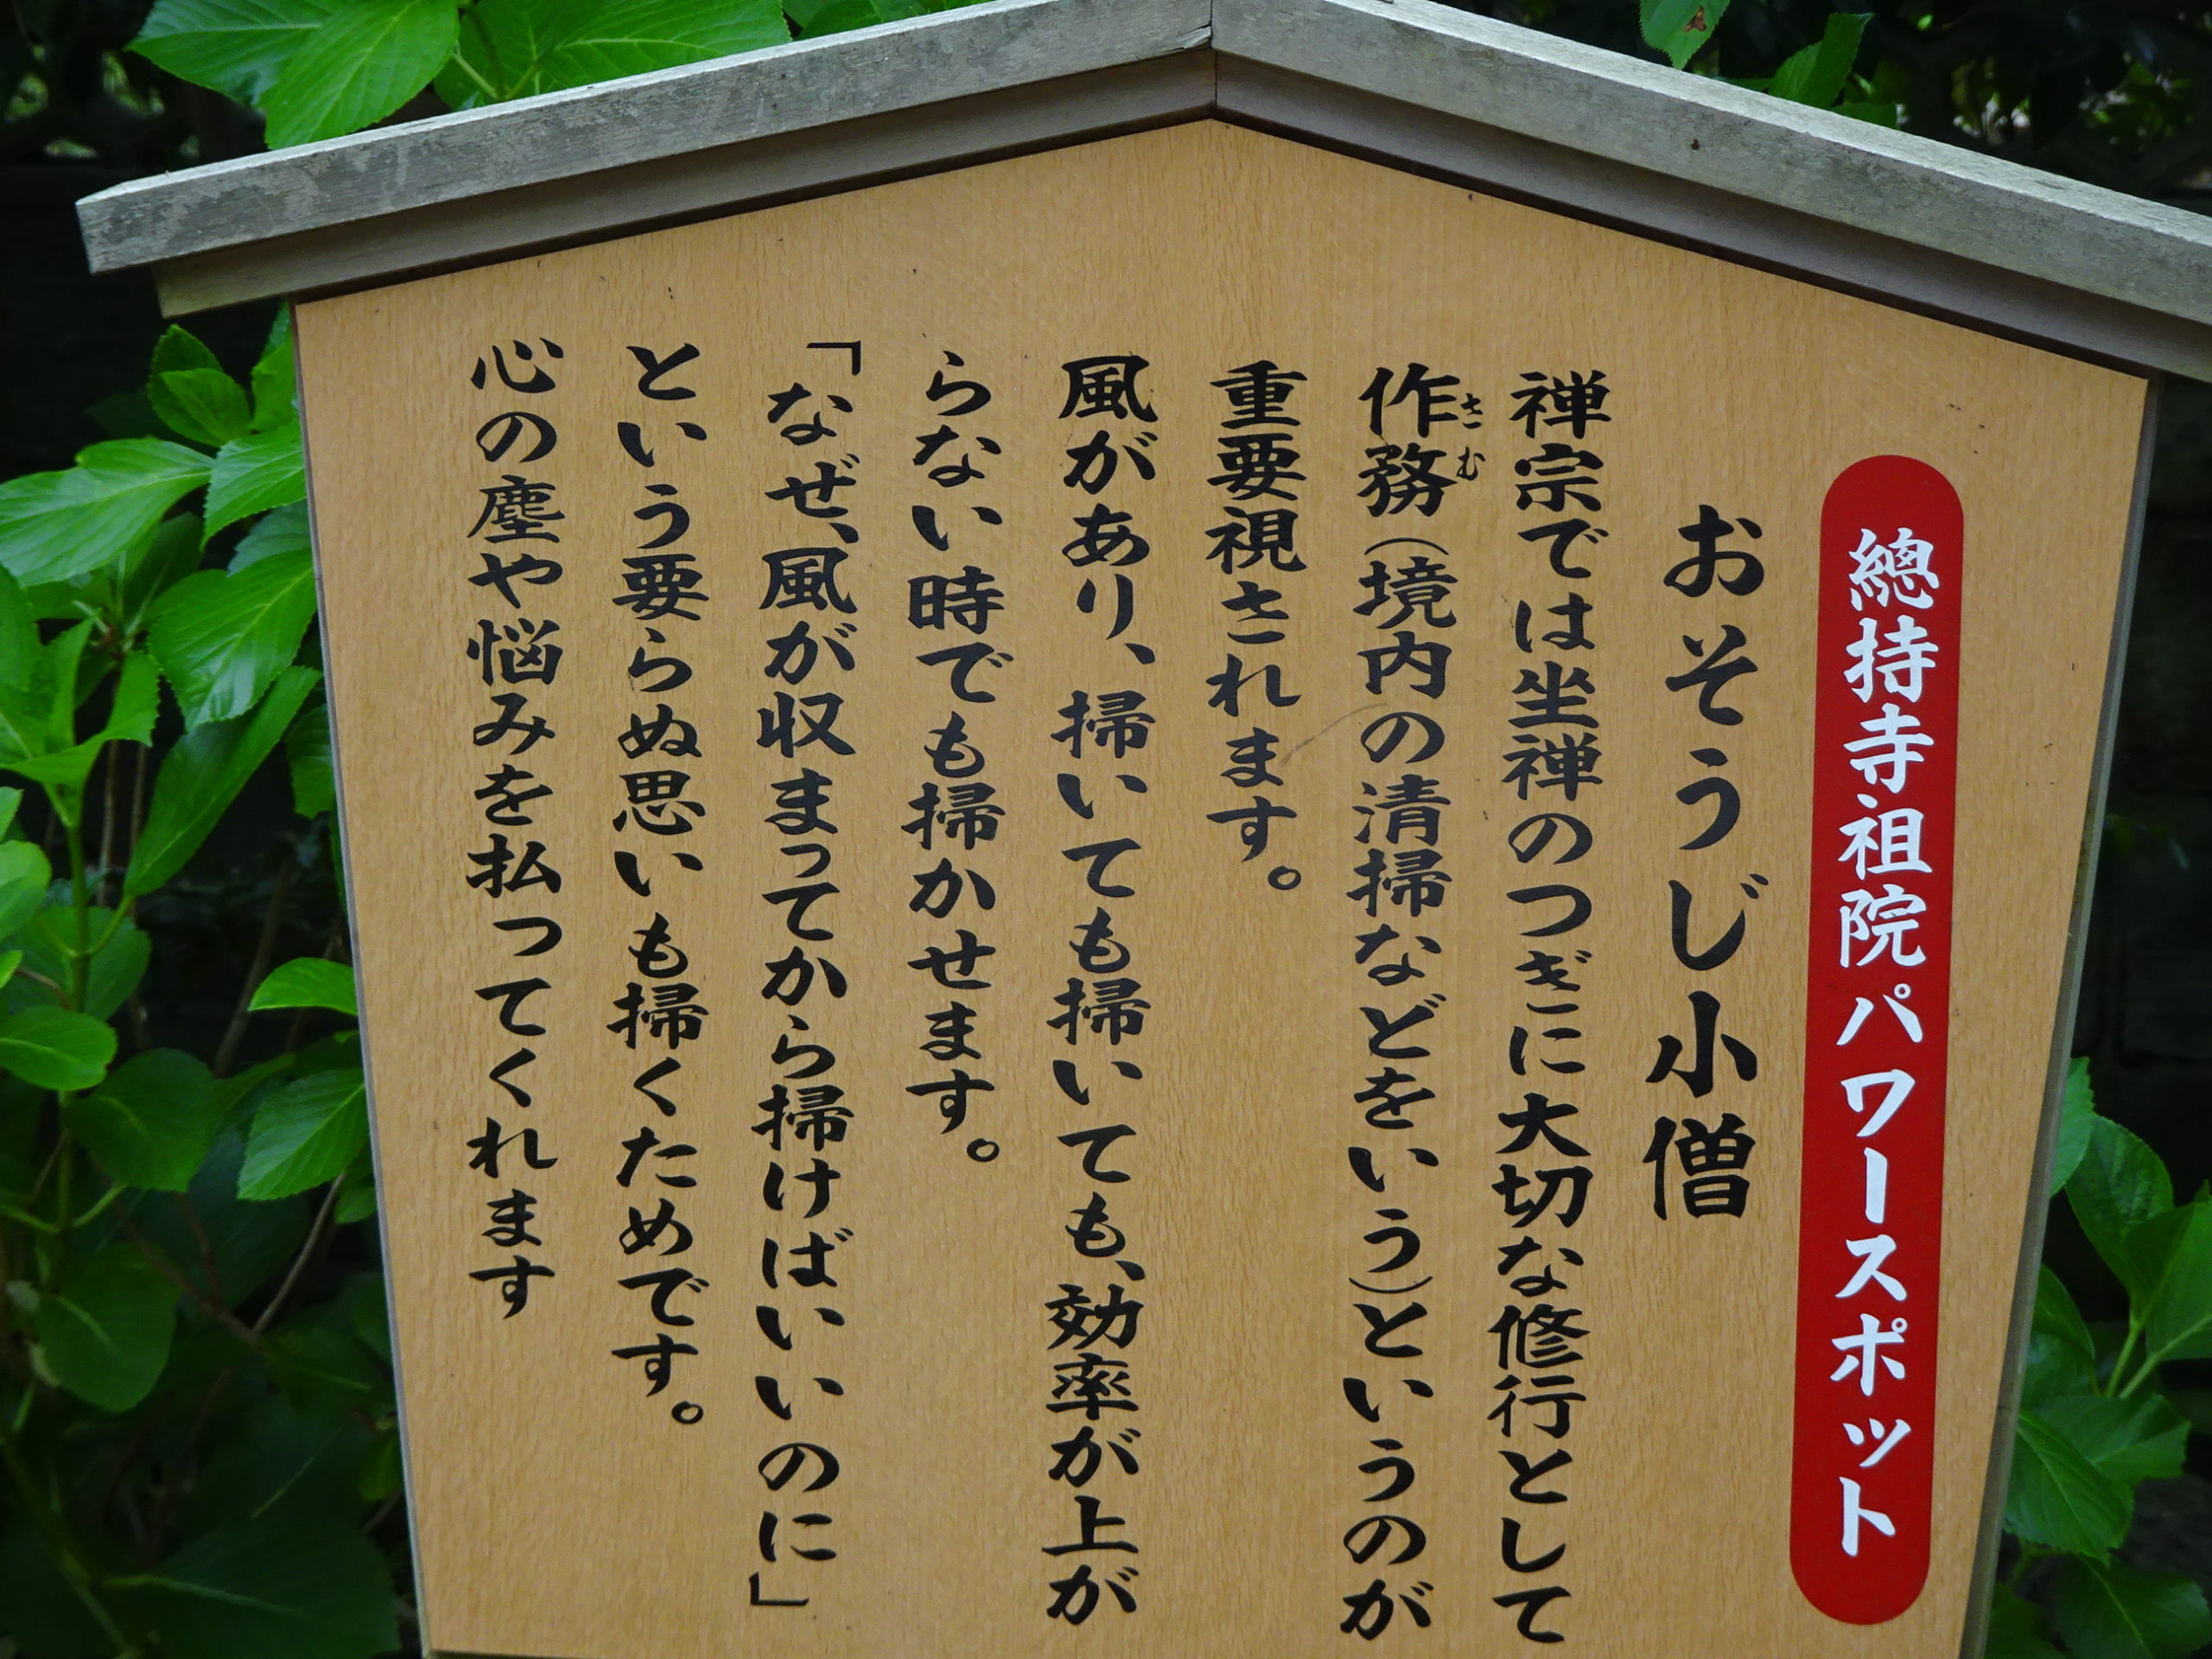 總持寺祖院パワースポット
おそうじ小僧
禅宗では坐禅のつぎに大切な修行として
作務(境内の清掃などをいう)というのが
さむ
重要視されます。
風があり、掃いても掃いても、効率が上が
らない時でも掃かせます。
「なぜ、風が収まってから掃けばいいのに」
という要らぬ思いも掃くためです。
心の塵や悩みを払ってくれます